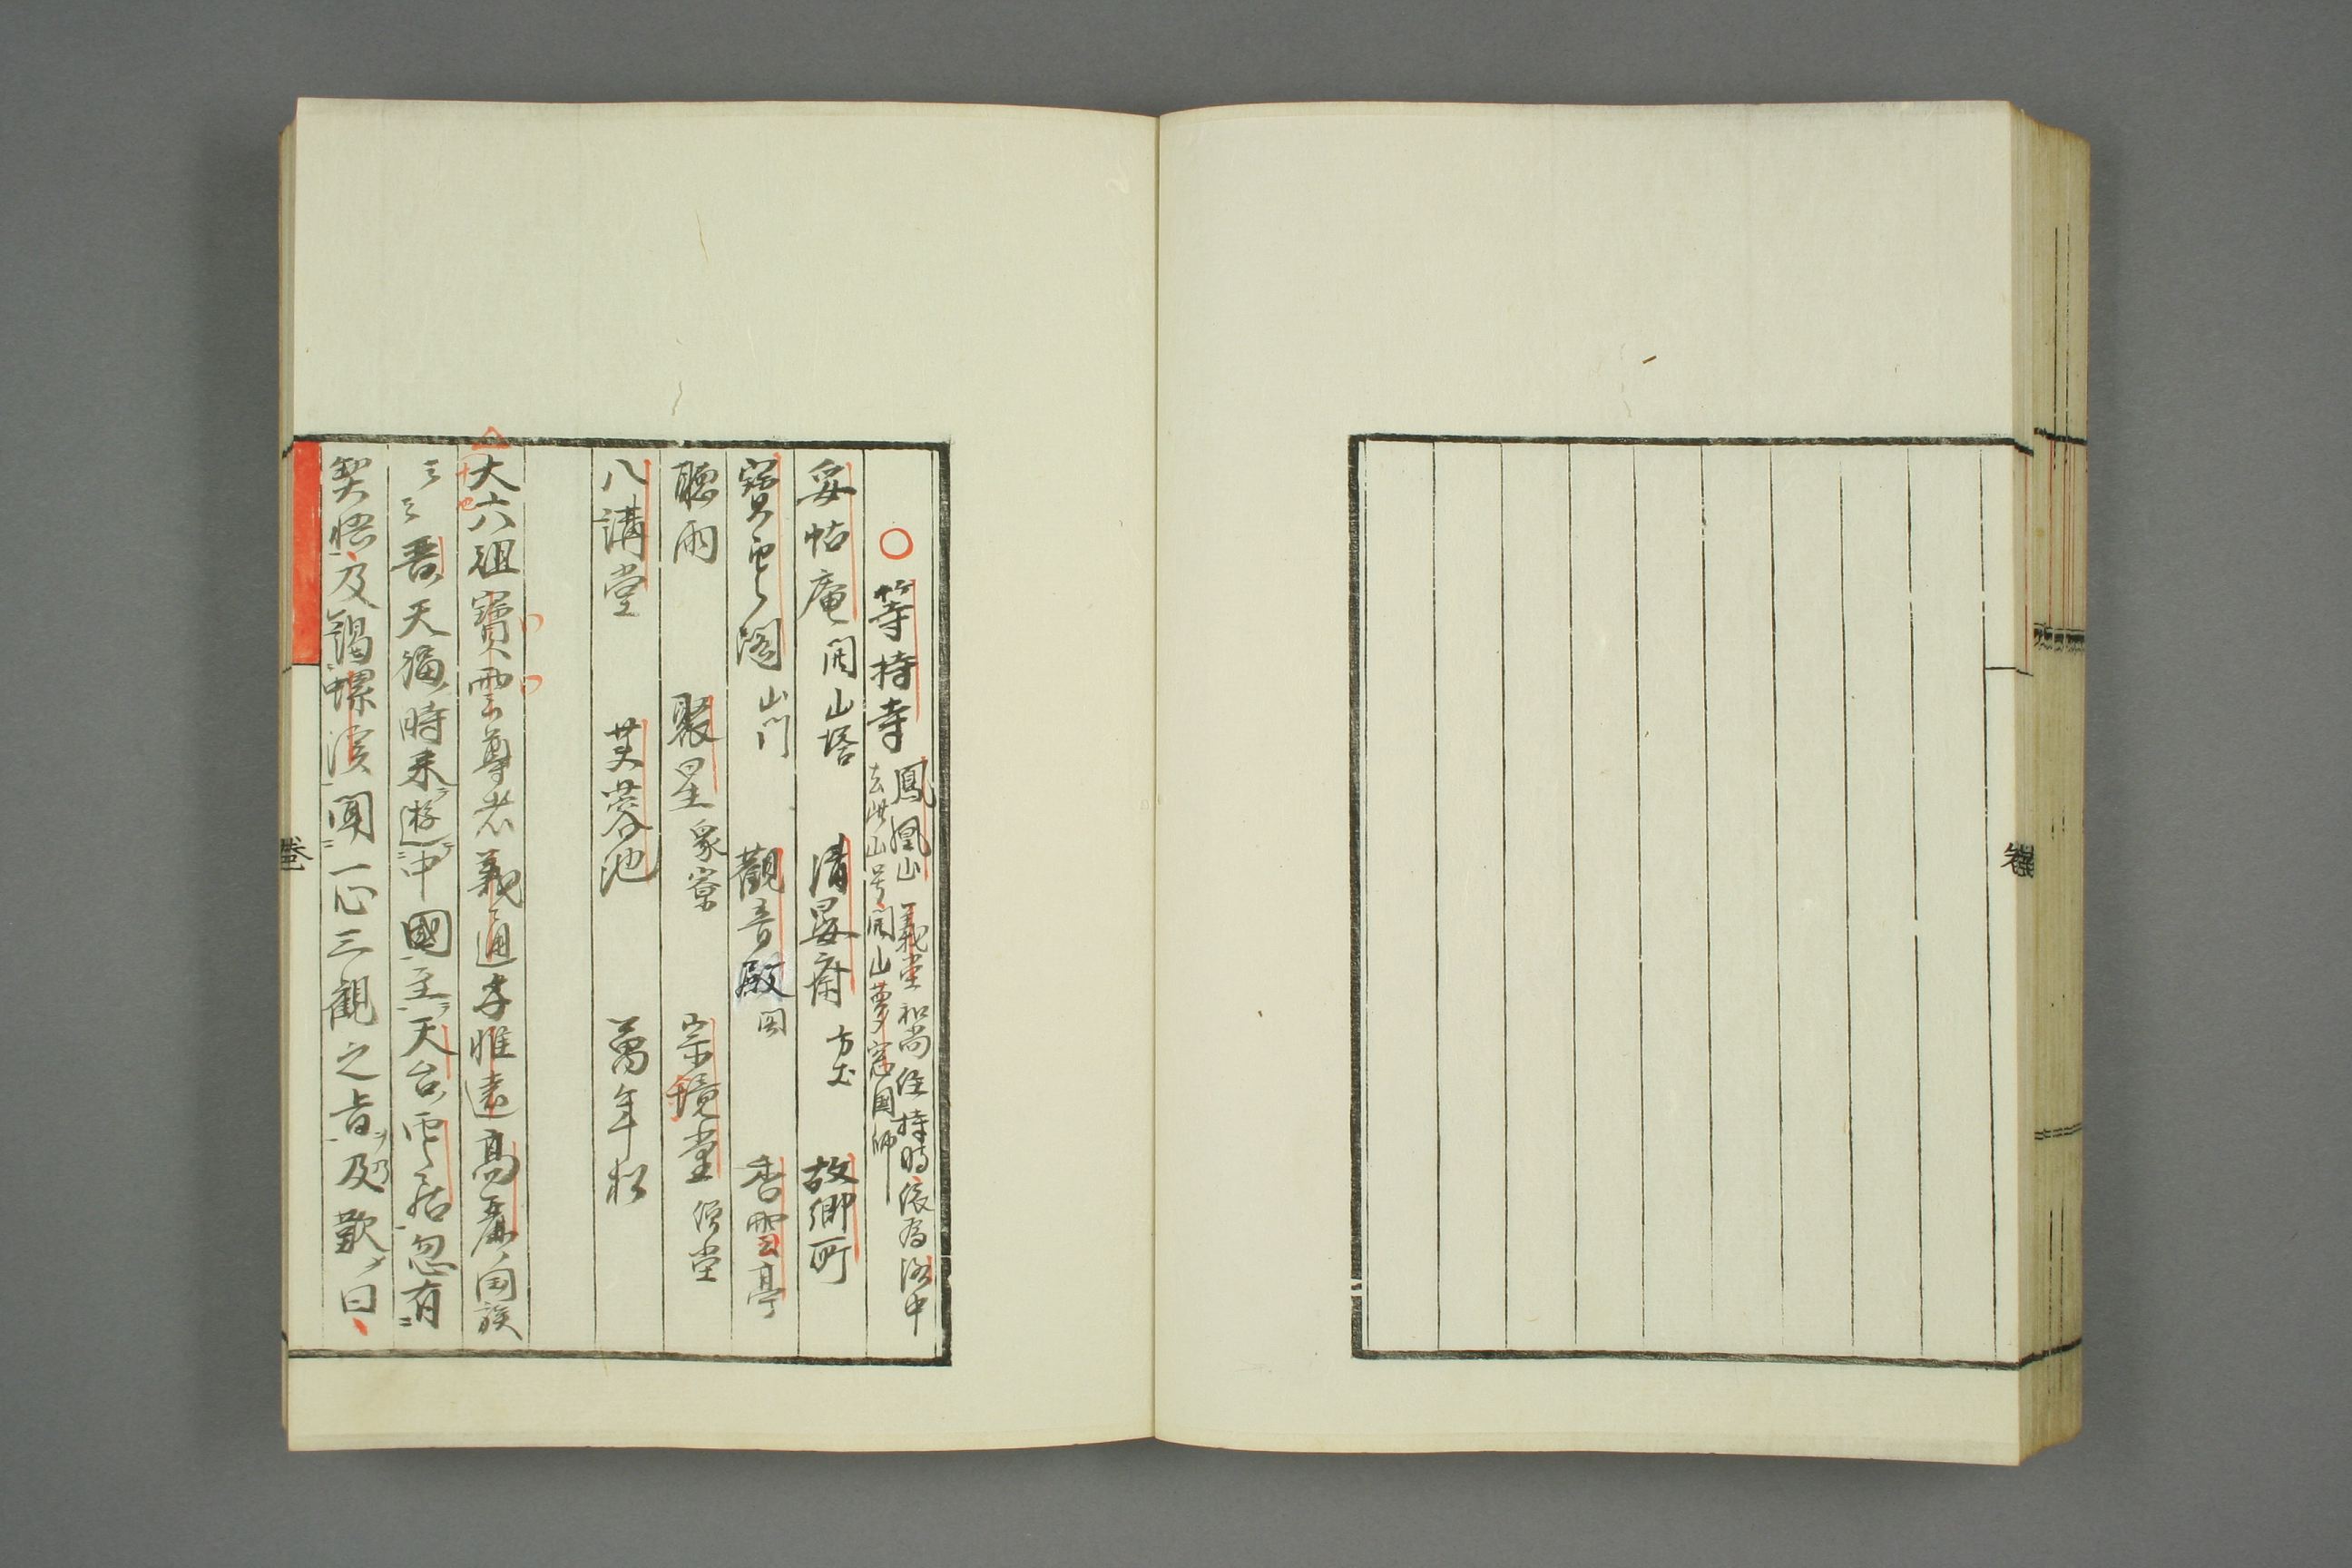 等持寺 鳳凰山 義堂和尚住持時依為洛中
去此山号開山夢窓国師
妥帖庵 開山塔 清晏齋 方丈 故郷所
寶雲閣 山门 觀音殿 図 香雪亭
聽雨 聚星 衆寮 宗鏡堂 僧堂
八講堂 芙蓉池 萬年松
十六祖寶雲尊者義通字惟遠高麗国族
云云晋天福時来遊中國至天台雲居忽有
契悟及謁螺溪聞一心三觀之旨乃歎曰
卷
卷